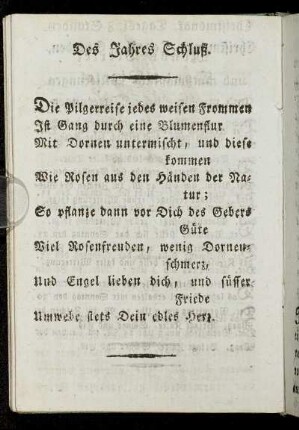 Des Jahres Schluß.
Die Pilgerreise jedes weisen Frommen
Ist Gang durch eine Blumenflur
Mit Dornen untermischt, und diese
kommen
Wie Rosen aus den Händen der Na-
tur;
So pflanze dann vor Dich des Gebers
Güte
Viel Rosenfreuden, wenig Dornen-
schmerz,
Und Engel lieben dich, und süsser
Friede
Umwebe stets Dein edles Herz.